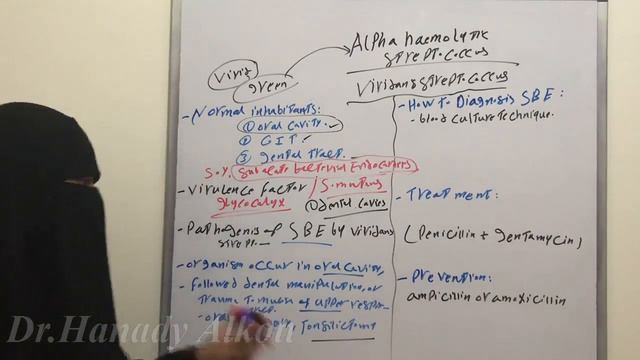 Alpha haemolytic
strept.coccus
Virid
green
Viridans strept.coccus
- Normal inhabitants:
① oral cavity.
② G I T
③ genital tract.
subacute bacterial Endocarditis
- Virulence factor
glycocalyx
S.mutans
① dental caries
- Pathogenesis of SBE by viridans
strept.
- organism occur in oral cavity,
- followed dental manipulation, or
trauma to mucosa of upper
tonsilictomy
- How to Diagnosis SBE:
- blood culture technique.
- Treatment:
(Penicillin + gentamycin)
- Prevention:
ampicillin or amoxicillin
Dr.Hanady Alkon